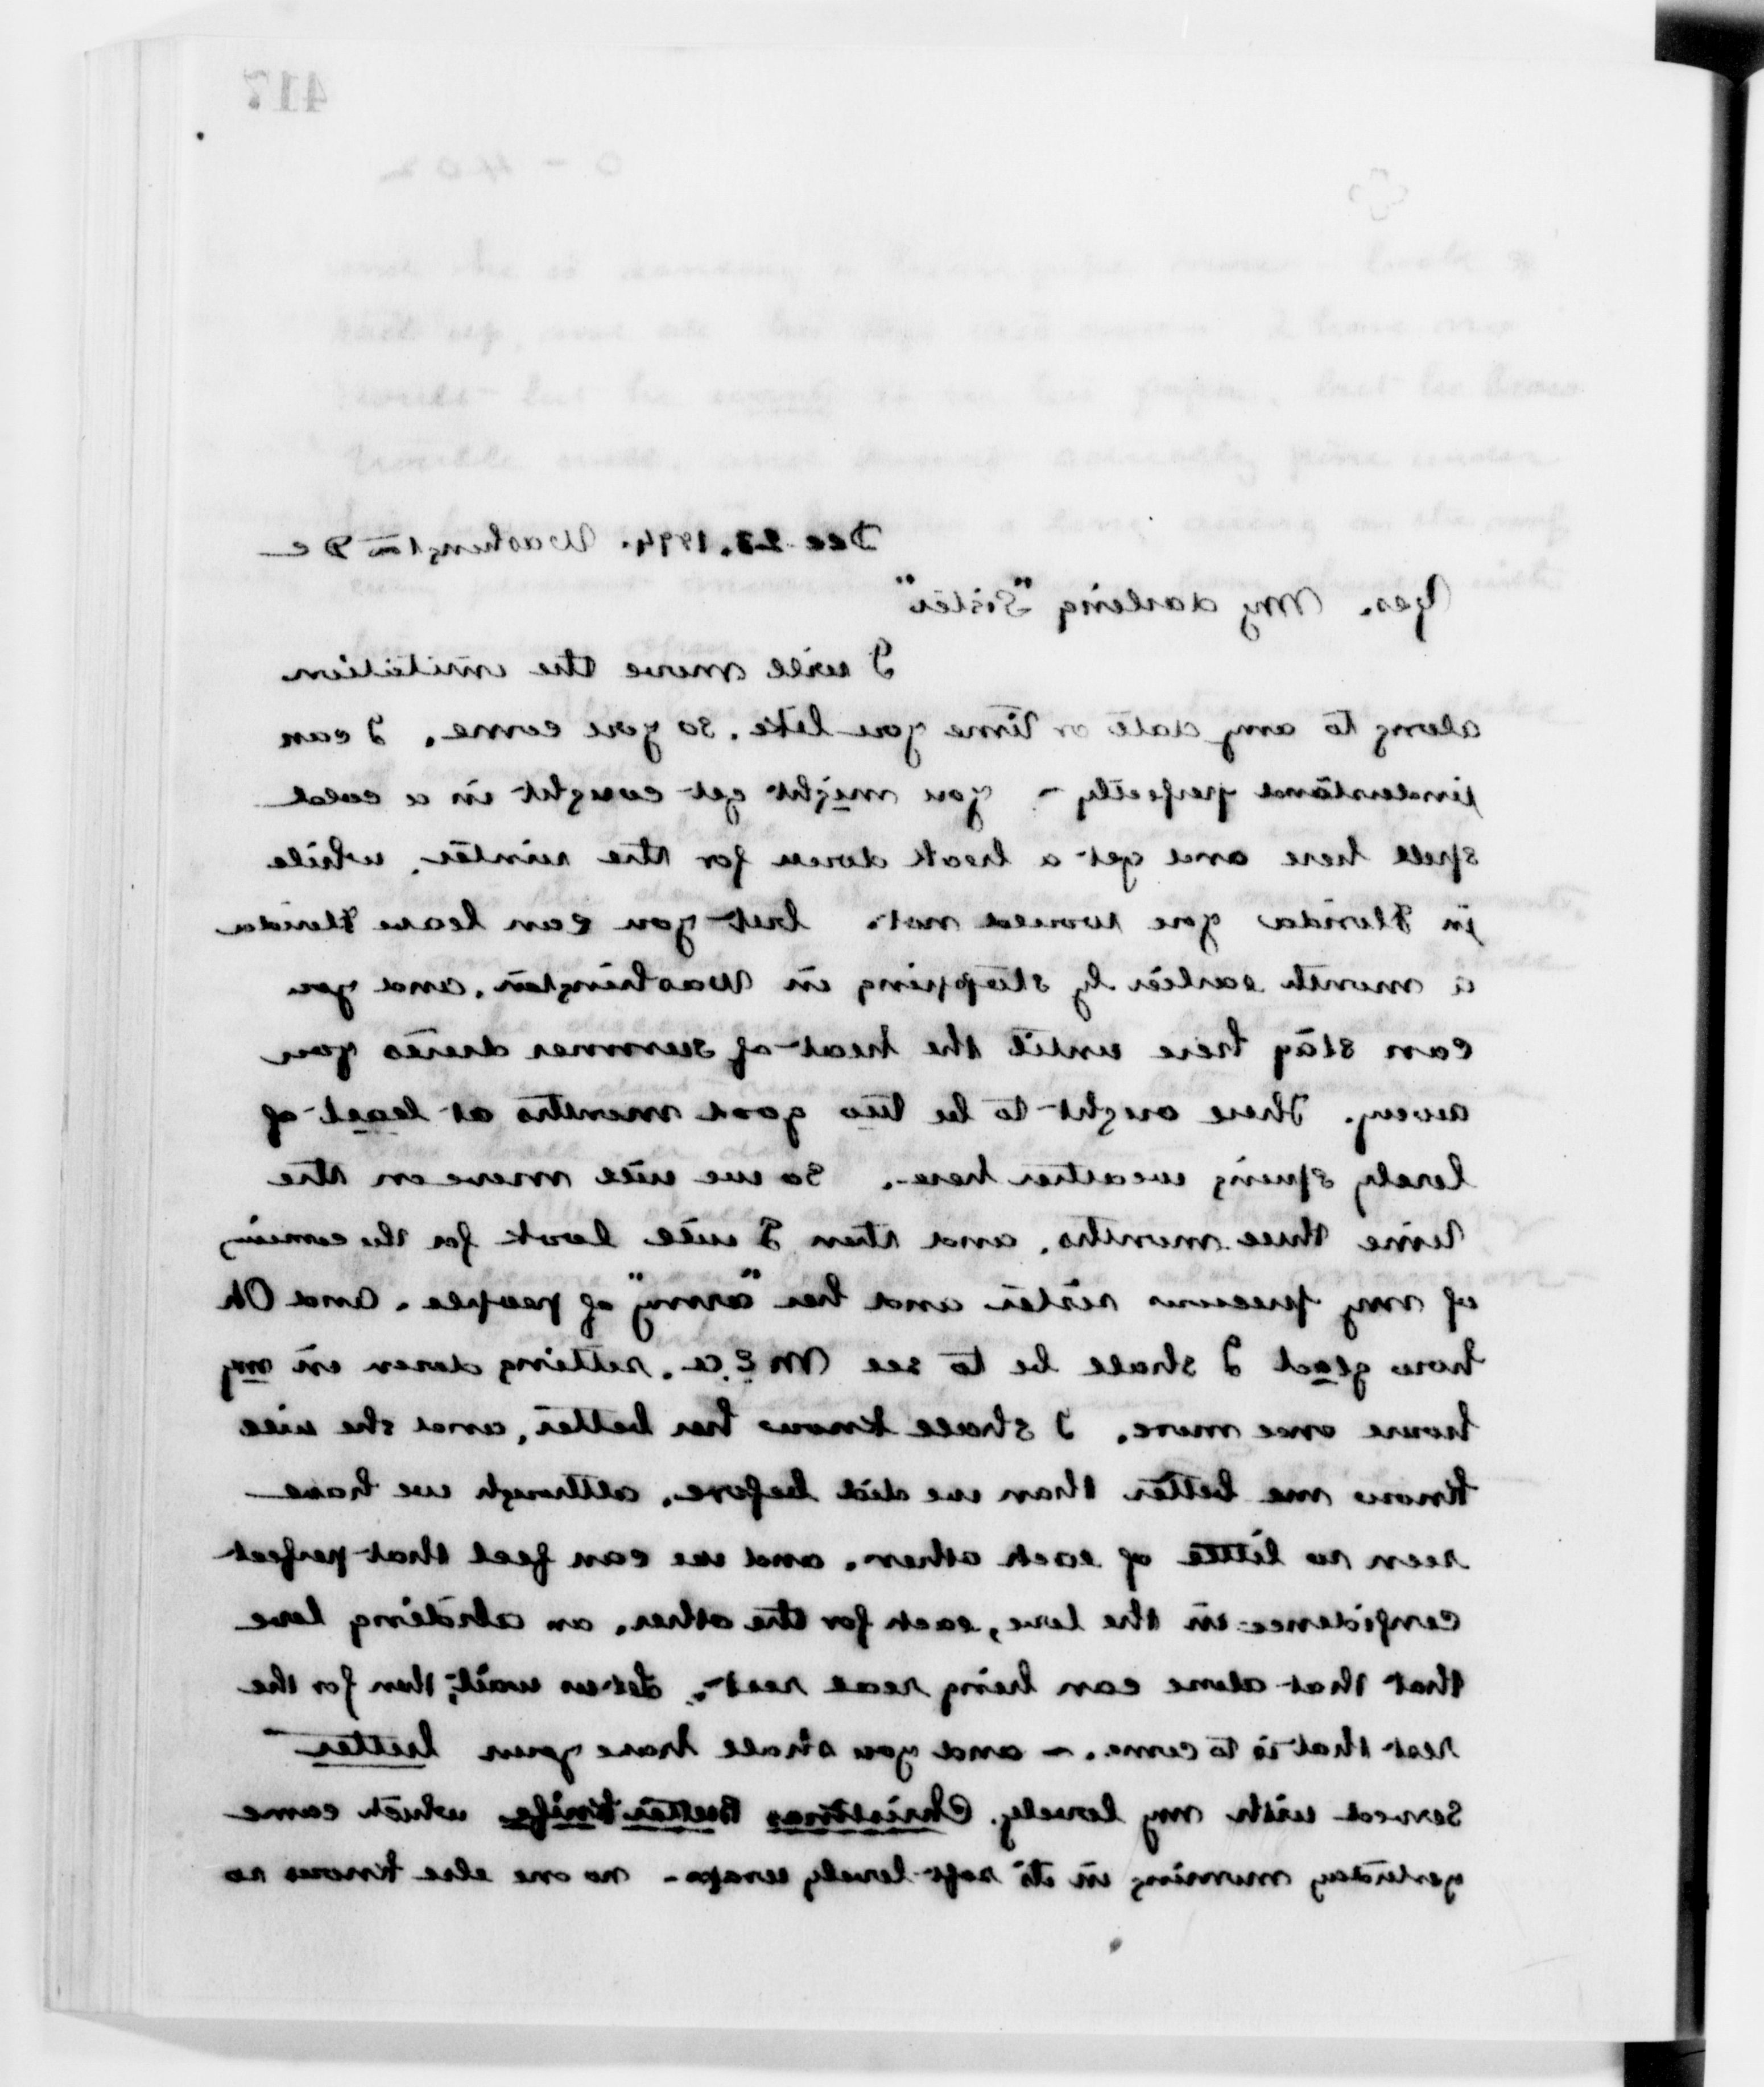 417
Dec 23. 1894. Washington D C
Yes. My darling "Sister"
I will move the invitation
along to any date or time you like. so you come. I can
understand perfectly - you might get caught in a cold
spell here and get a break down for the winter, while
in Florida you would not. but you can leave Florida
a month earlier by stopping in Washington. and you
can stay here until the heat of summer drives you
away. There ought to be two good months at least of
lovely spring weather here. So we will move on the
time three months. and then I will look for the coming
of my precious sister and her "army" of people. And Oh
how glad I shall be to see M.E.A. sitting down in my
house once more. I shall know her better, and she will
know me better than we did before. although we have
seen so little of each other. and we can feel that perfect
confidence in the love, each for the other. an abiding love
that that alone can bring real rest. Let us wait, then for the
rest that is to come. - and you shall have your butter
served with my lovely. Christmas Butter knife. which came
yesterday morning in its soft lovely wraps - no one else knows so